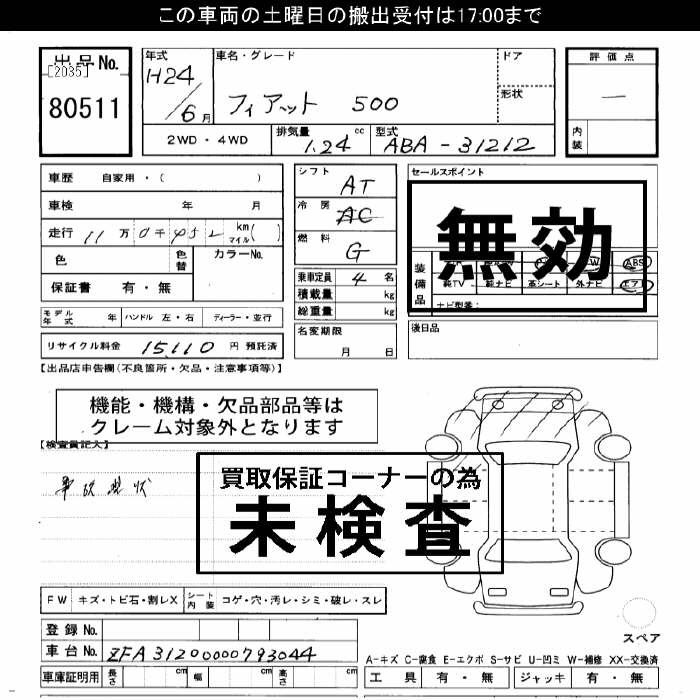 この車両の土曜日の搬出受付は17:00まで
出品No.
[2035]
80511
年式
H24
6月
車名・グレード
フィアット 500
ドア
形状
評価点
内装
2WD・4WD
排気量 1.24 cc
型式 ABA-31212
車歴 自家用・( )
車検 年 月
走行 11万0千452 km マイル( )
色
色替
カラーNo.
保証書 有・無
モデル年式 年 ハンドル 左・右 ディーラー・並行
リサイクル料金 15,110 円 預託済
シフト AT
冷房 AC
燃料 G
乗車定員 4 名
積載量 kg
総重量 kg
名変期限
月 日
セールスポイント
無効
装備品
純TV 純ナビ 革シート 外ナビ エアB
ABS
ナビ型番:
後日品
【出品店申告欄(不良箇所・欠品・注意事項等)】
機能・機構・欠品部品等は
クレーム対象外となります
【検査員記入】
事故現状
買取保証コーナーの為
未検査
FW キズ・トビ石・割レX シート内装 コゲ・穴・汚レ・シミ・破レ・スレ
登録No.
車台No. ZFA31200000793044
車庫証明用 長さ cm 幅 cm 高さ cm
スペア
A-キズ C-腐食 E-エクボ S-サビ U-凹ミ W-補修 XX-交換済
工具 有・無 ジャッキ 有・無